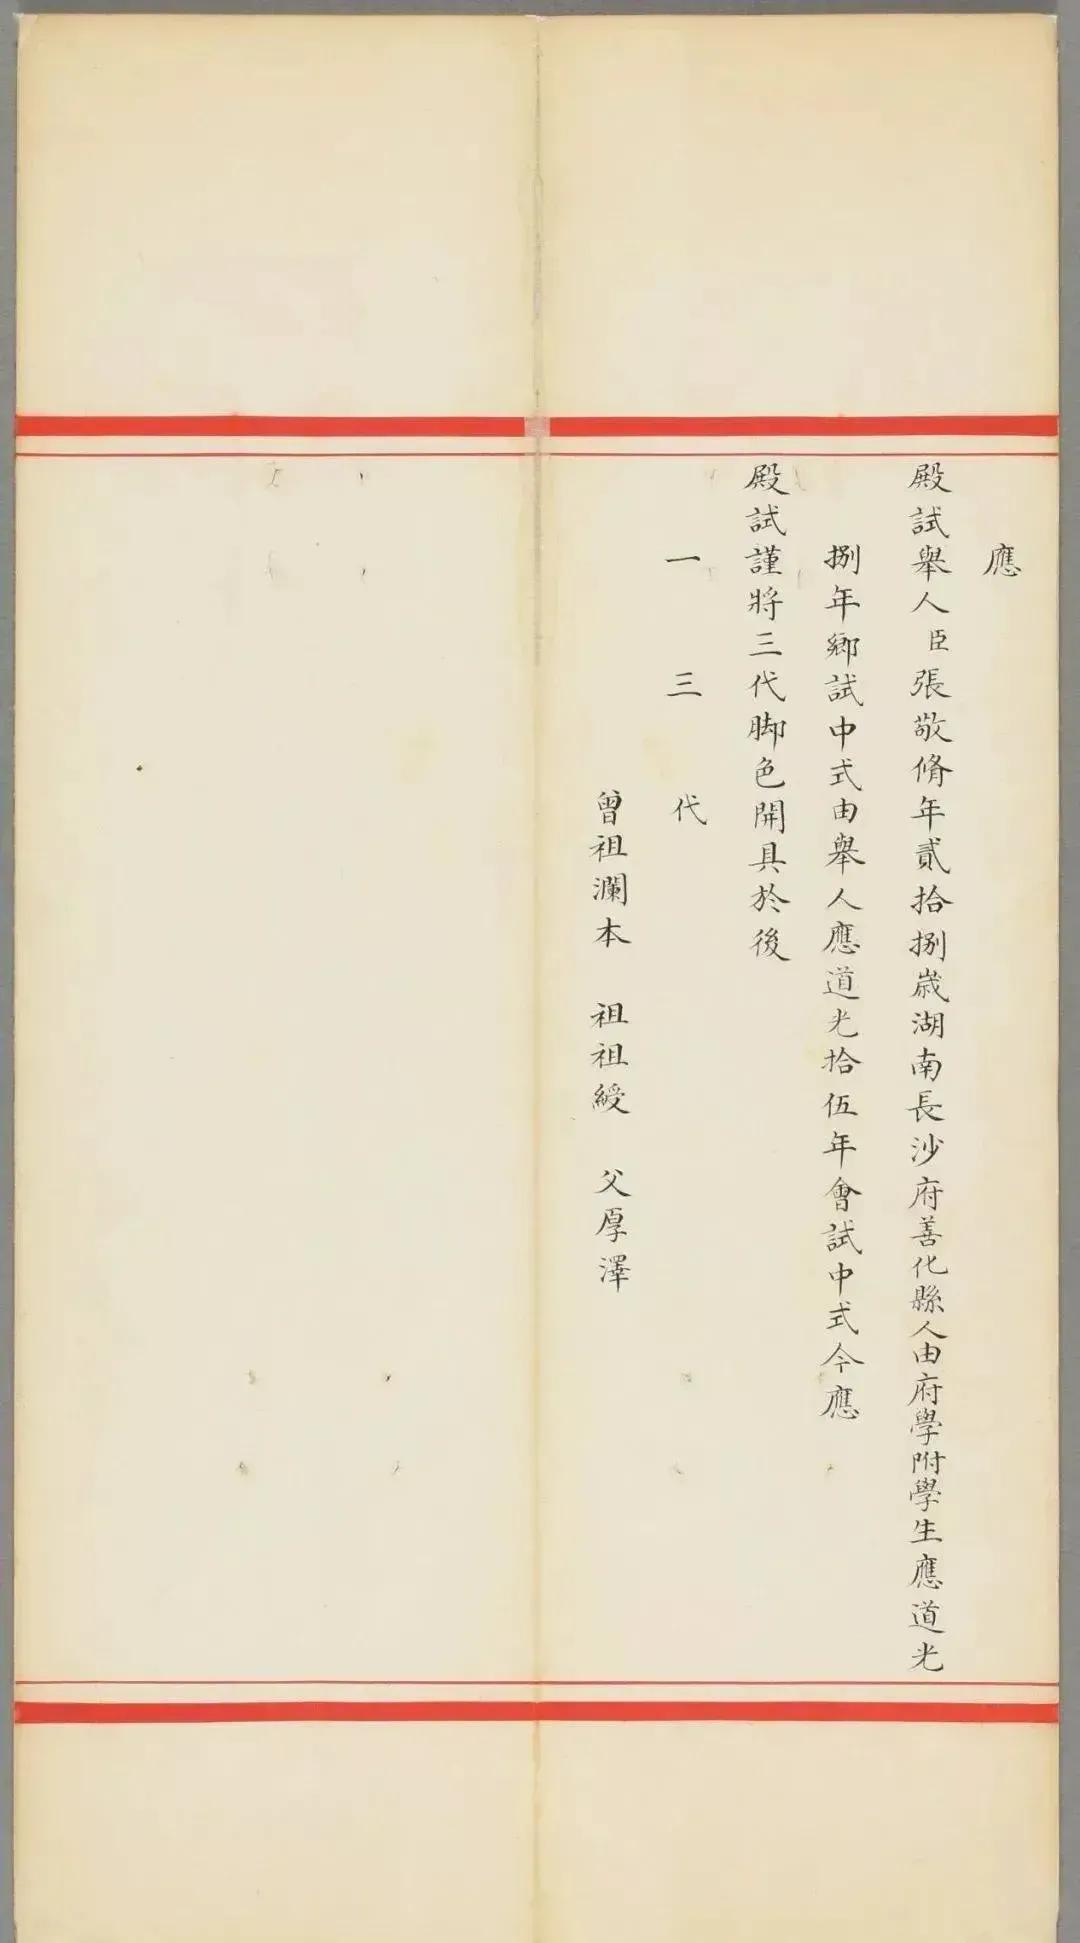 應
殿試舉人臣張敬脩年貳拾捌歲湖南長沙府善化縣人由府學附學生應道光
捌年鄉試中式由舉人應道光拾伍年會試中式今應
殿試謹將三代脚色開具於後
一三代
曾祖瀾本 祖祖綬 父厚澤